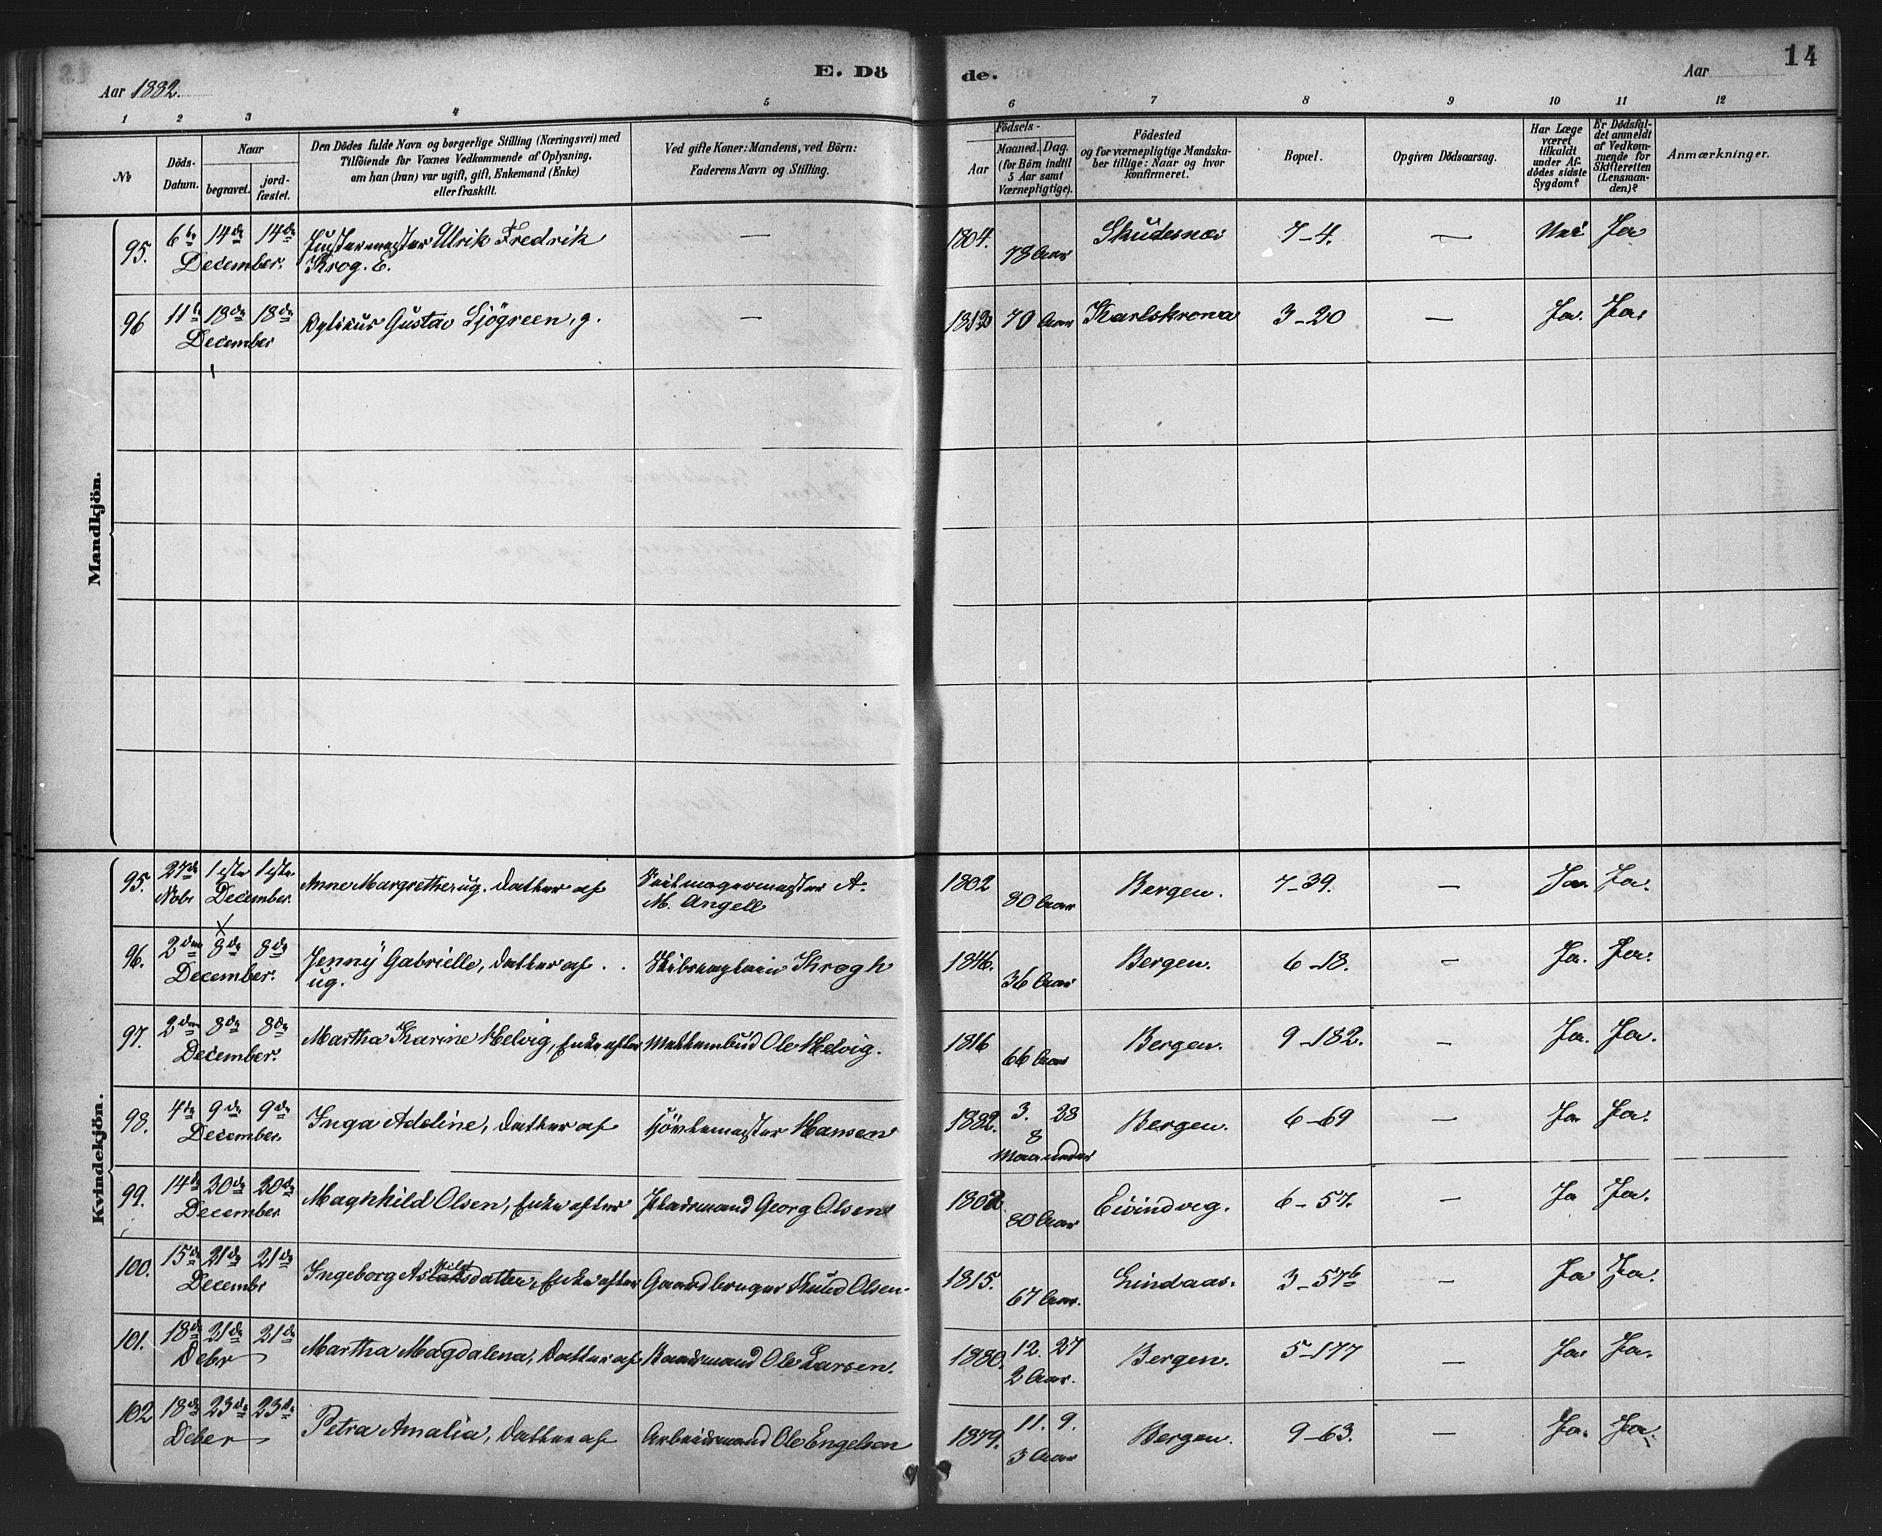 14
E. Döde.
Aar 1882.
Aar
1 2 3 4 5 6 7 8 9 10 11 12
No
Döds-Datum.
Naar
begravet.
jordfæstet.
Den Dödes fulde Navn og borgerlige Stilling (Næringsvei) med
Tilföiende for Voxnes Vedkommende af Oplysning,
om han (hun) var ugift, gift, Enkemand (Enke)
eller fraskilt.
Ved gifte Koner: Mandens, ved Börn:
Faderens Navn og Stilling.
Födsels-
Aar
Maaned. Dag.
(for Börn indtil
5 Aar samt
Værnepligtige).
Födested
og for værnepligtige Mandska-
ber tillige: Naar og hvor
konfirmeret.
Bopæl.
Opgiven Dödsaarsag.
Har Læge
været
tilkaldt
under Af-
dödes sidste
Sygdom?
Er Dödsfal-
det anmeldt
af Vedkom-
mende for
Skifteretten
(Lensman-
den)?
Anmærkninger.
Mandkjön.
95. 6te 14de 14de Ulrik Fredrik — 1804. Skudesnæs 7-4. — Nei Ja
December. Krog. E. 78 Aar
96 11te 18de 18de Gustav Sjögreen, g. — 1812 70 Aar Karlskrona 3-20 — Ja. Ja.
December
Kvindekjön.
95. 27de 1ste 1ste Anne Margrethe, ug. Datter af A. 1802 Bergen. 7-39. — Ja. Ja.
Nobr December. M. Angell 80 Aar
96. 2den 8de 8de Jenny Gabrielle, Datter af Skibscaptain Krogh 1846. Bergen. 6-18. — Ja. Ja.
December. ug. 36 Aar
97. 2den 8de 8de Martha Karine Helvig, Enke efter Ole Helvig. 1816 Bergen. 9-182. — Ja. Ja.
December. 66 Aar
98. 4de 9de 9de Inga Adeline, Datter af Hansen 1882. 3. 28 Bergen. 6-69 — Ja. Ja.
December. 8 Maaneder
99. 14de 20de 20de Maghhild Olsen, Enke efter Pladsmand Georg Olsen 1802. Eivindvig. 6-57. — Ja Ja.
December 80 Aar
100. 15de 21de 21de Ingeborg Aslaksdatter, Enke efter Gaardbruger Knud Olsen. 1815. Lindaas. 3-57b — Ja Ja.
December 67 Aar.
101. 18de 21de 21de Martha Magdalena, Datter af Baadsmand Ole Larsen. 1880. 12. 27 Bergen. 5-177 — Ja. Ja.
Debr 2 Aar.
102 18de 23de 23de Petra Amalia, Datter af Arbeidsmand Ole Engelsen 1879. 11. 9. Bergen. 9-63. — Ja. Ja.
Deber 3 Aar